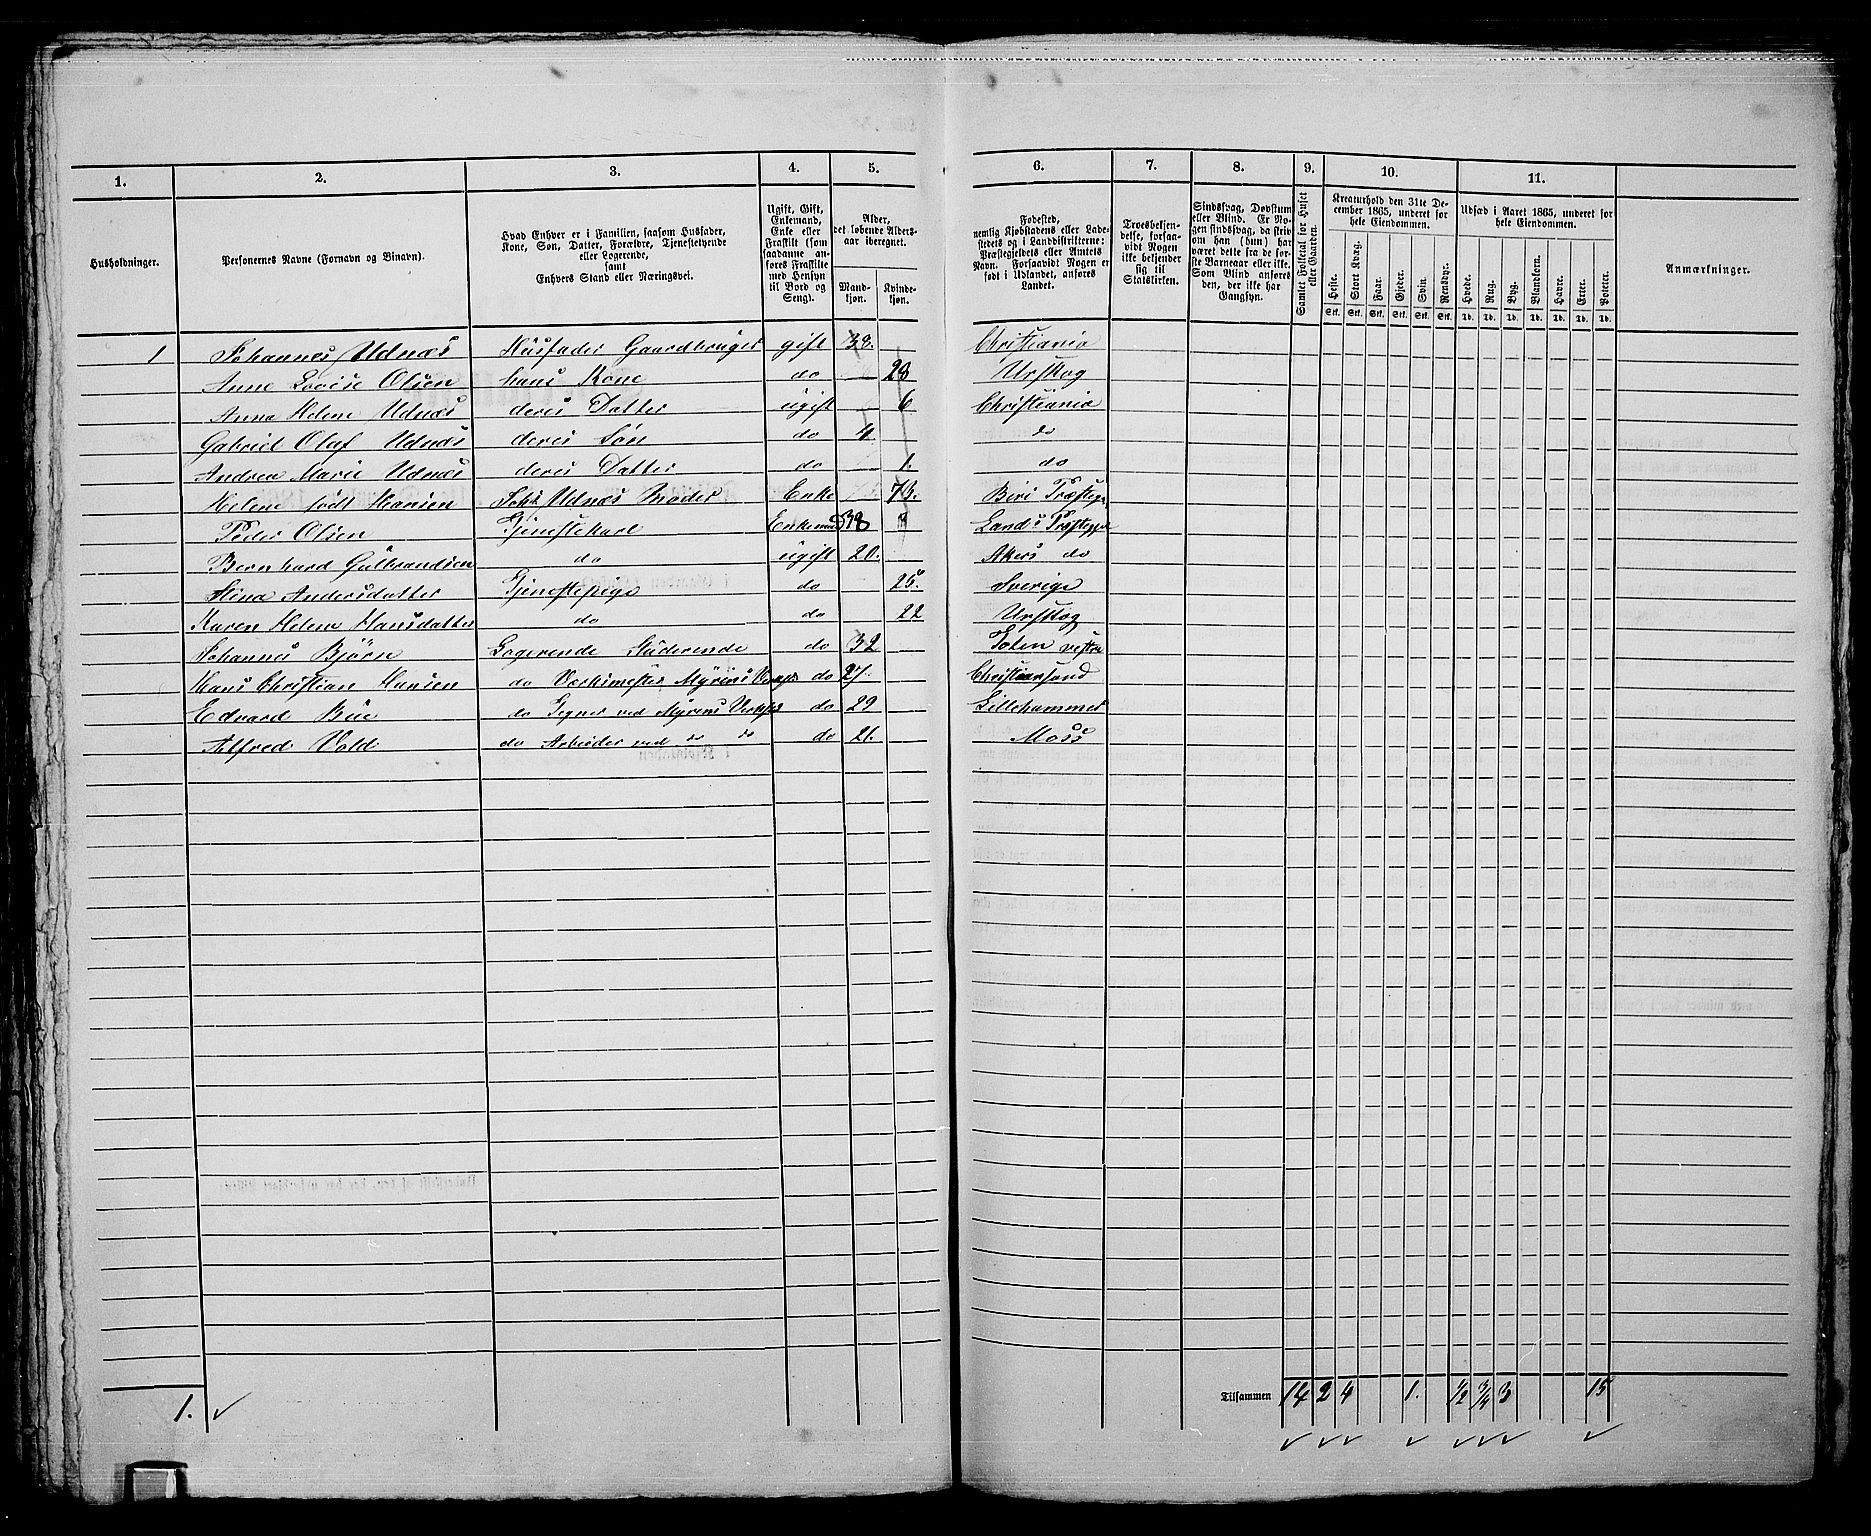 1. 2. 3. 4. 5. 6. 7. 8. 9. 10. 11.
Husholdninger.
Personernes Navne (Fornavn og Binavn).
Hvad Enhver er i Familien, saasom Husfader,
Kone, Søn, Datter, Forældre, Tjenestetyende
eller Logerende,
samt
Enhvers Stand eller Næringsvei.
Ugift, Gift,
Enkemand,
Enke eller
Fraskilt (som
saadanne an-
føres Fraskilte
med Hensyn
til Bord og
Seng).
Alder,
det løbende Alders-
aar iberegnet.
Mand-
kjøn.
Kvinde-
kjøn.
Fødested,
nemlig Kjøbstadens eller Lade-
stedets og i Landdistrikterne:
Præstegjeldets eller Amtets
Navn. Forsaavidt Nogen er
født i Udlandet, anføres
Landet.
Troesbekjen-
delse, forsaa-
vidt Nogen
ikke bekjender
sig til
Statskirken.
Sindssvag, Døvstum
eller Blind. Er No-
gen sindssvag, da skriv
om han (hun) har
været dette fra de før-
ste Barneaar eller ikke.
Som Blind anføres
den, der ikke har
Gangsyn.
Samlet Folketal for Huset
eller Gaarden.
Kreaturhold den 31te De-
cember 1865, underet for
hele Eiendommen.
Heste. Stort Kvæg. Faar. Gjeder. Svin. Rensdyr.
Stk. Stk. Stk. Stk. Stk. Stk.
Udsæd i Aaret 1865, underet for
hele Eiendommen.
Hvede. Rug. Byg. Blandkorn. Havre. Erter. Poteter.
Td. Td. Td. Td. Td. Td. Td.
Anmærkninger.
1 Johannes Udnæs Husfader Gaardbruger gift 38. Christiania
Anne Lovise Olsen hans Kone do 28 Urskog
Anna Helene Udnæs deres Datter ugift 6 Christiania
Gabriel Olaf Udnæs deres Søn do 4 do
Andrea Marie Udnæs deres Datter do 1. do
Helene født Hansen Joh. Udnæs Moder Enke 73. Biri Præstegj
Peder Olsen Tjenestekarl Enkemand 38 Lands Præstegj
Bernhard Gulbrandsen do ugift 20. Akers do
Stina Andersdatter Tjenestepige do 25. Sverige
Karen Helene Hansdatter do do 22 Urskog
Johannes Bjørn Logerende Studerende do 32 Toten vestre
Hans Christian Hansen do Værkmester Myrens Værksted do 27. Christiansund
Edvard Bue do Tegner ved Myrens Værksted do 29 Lillehammer
Alfred Vold do Arbeider ved do do do 21. Moss
1. ✓
Tilsammen 14 2 4 1. 1/2 3/4 3 15
✓ ✓ ✓ ✓ ✓ ✓ ✓ ✓